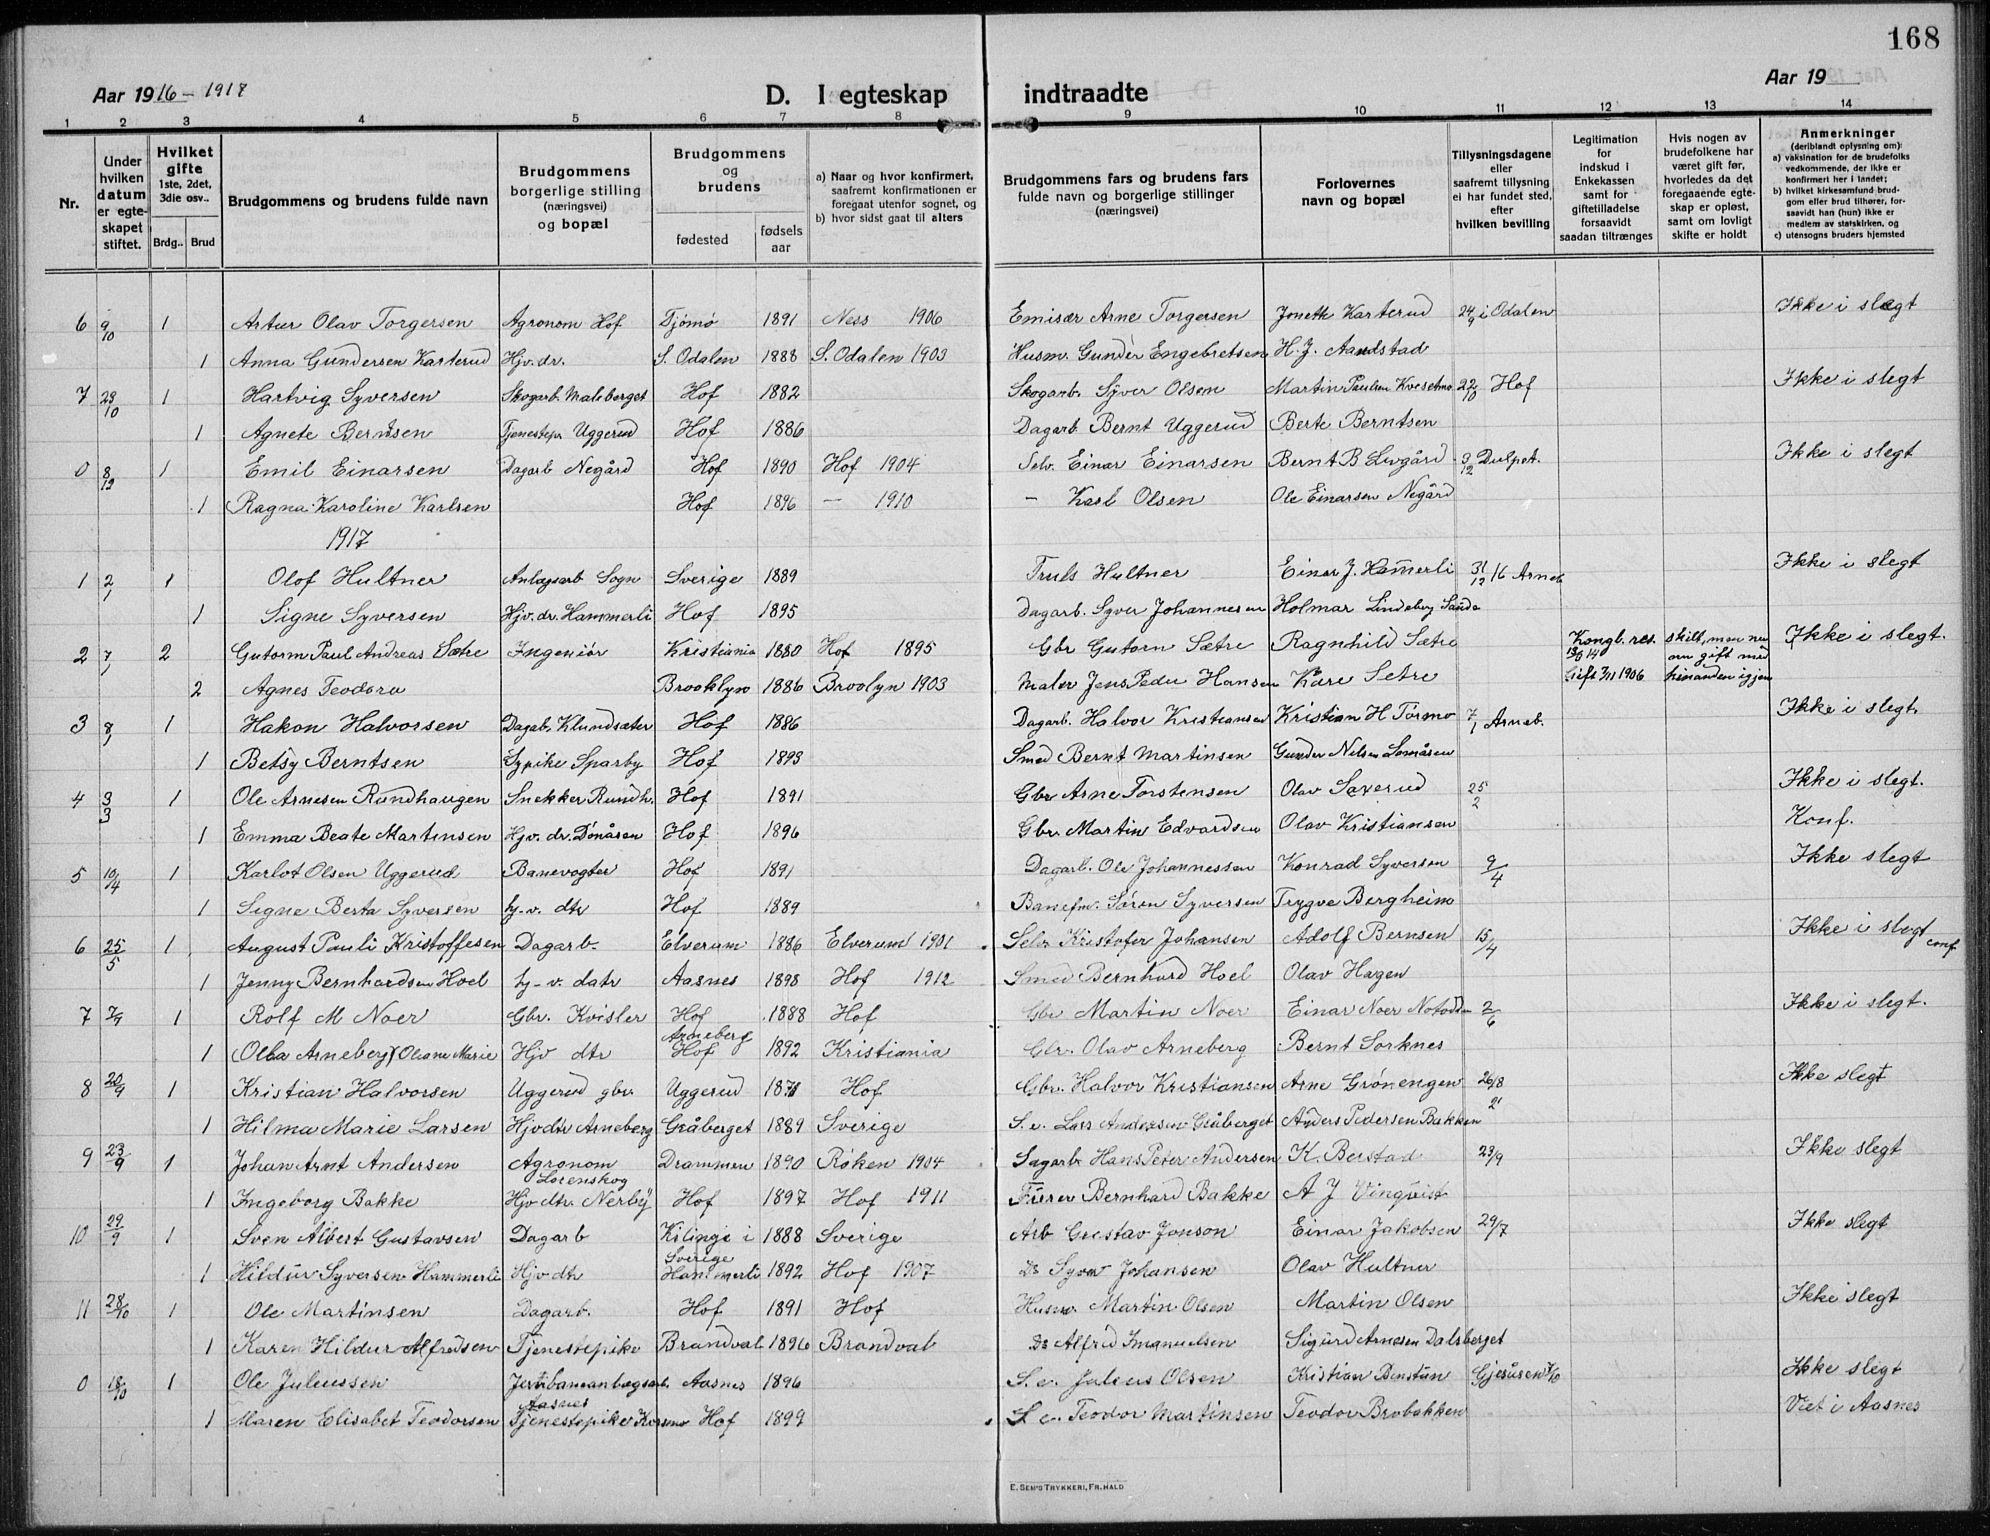 168
Aar 1916 - 1918
D. I egteskap indtraadte
Aar 19
1 2 3 4 5 6 7 8 9 10 11 12 13 14
Nr.
Under hvilken datum er egteskapet stiftet.
Hvilket gifte 1ste, 2det, 3die osv..
Brdg.. Brud
Brudgommens og brudens fulde navn
Brudgommens borgerlige stilling (næringsvei) og bopæl
Brudgommens og brudens
fødested
fødsels aar
a) Naar og hvor konfirmert, saafremt konfirmationen er foregaat utenfor sognet, og
b) hvor sidst gaat til alters
Brudgommens fars og brudens fars fulde navn og borgerlige stillinger (næringsvei)
Forlovernes navn og bopæl
Tillysningsdagene eller saafremt tillysning ei har fundet sted, efter hvilken bevilling
Legitimation for indskud i Enkekassen samt for giftetilladelse forsaavidt saadan tiltrænges
Hvis nogen av brudefolkene har været gift før, hvorledes da det foregaaende egteskap er opløst, samt om lovligt skifte er holdt
Anmerkninger (deriblandt oplysning om):
a) vaksination for de brudefolks vedkommende, der ikke er konfirmert her i landet;
b) hvilket kirkesamfund brudgom eller brud tilhører, forsaavidt han (hun) ikke er medlem av statskirken, og
c) utensogns bruders hjemsted
6 9/10 1 Artur Olav Torgersen Agronom Hof Tjømø 1891 Ness 1906 Emisær Arne Torgersen Jonette Karterud 24/9 i Odalen Ikke i slægt
1 Anna Gundersen Karterud Hjv. dr. S. Odalen 1888 S. Odalen 1903 Husm. Gunder Engebretsen H. J. Aandstad
7 28/10 1 Hartvig Syversen Skogarb. Maleberget Hof 1882 Skogarb. Syver Olsen Martin Paulsen Kvesetmo 22/10 Hof Ikke i slegt
1 Agnete Berntsen Tjenestepi Uggerud Hof 1886 Dagarb. Bernt Uggerud Berte Berntsen
0 8/12 1 Emil Einarsen Dagarb Negård Hof 1890 Hof 1904 Selv. Einar Einarsen Bernt B Livgård 3/12 Dulpet. Ikke i slegt
1 Ragna Karoline Karlsen Hof 1896 — 1910 — Karl Olsen Ole Einarsen Negård
1917
1 2/1 1 Olof Hultner Anlægsarb Sogn Sverige 1889 Truls Hultner Einar J. Hammerli 31/12 16 Arneb Ikke i slegt
1 Signe Syversen Hjv. dr. Hammerli Hof 1895 Dagarb. Syver Johannesen Holmar Lindeberg Sanda
2 7/1 2 Gutorm Paul Andreas Sætre Ingeniör Kristiania 1880 Hof 1895 Gbr Gutorm Sætre Ragnhild Sætre Kongl. res. 13/6 14 skilt, men nu Ikke i slegt.
2 Agnes Teodora Brooklyn 1886 Broolyn 1903 Maler Jens Peder Hansen Kåre Setre Gift 7/11 1906 nu gift med hinanden igjen
3 8/1 1 Hakon Halvorsen Dagab. Klundsæter Hof 1886 Dagarb. Halvor Kristiansen Kristian H Tørmo 7/1 Arneb. Ikke i slegt.
1 Betsy Berntsen Sypike Sparby Hof 1893 Smed Bernt Martinsen Gunder Nilsen Lomåsen
4 3/3 1 Ole Arnesen Rundhaugen Snekker Rundh. Hof 1891 Gbr Arne Torstensen Olav Saverud 25/2 Ikke i slegt.
1 Emma Beate Martinsen Hjv. dr. Dønåsen Hof 1896 Gbr. Martin Edvardsen Olav Kristiansen Konf.
5 10/4 1 Karlot Olsen Uggerud Banevogter Hof 1891 Dagarb. Ole Johannessen Konrad Syversen 9/4 Ikke i slegt
1 Signe Berta Syversen hj-v. dtr Hof 1889 Banefm. Søren Syversen Trygve Bergheim
6 25/5 1 August Pauli Kristoffesen Dagarb. Elverum 1886 Elverum 1901 Selv Kristofer Johansen Adolf Bernsen 15/4 Ikke i slegt conf
1 Jenny Bernhardsen Hoel hj-v. datr Aasnes 1898 Hof 1912 Smed Bernhard Hoel Olav Hagen
7 7/7 1 Rolf M Noer Gbr. Kvisler Hof 1888 Hof Gbr Martin Noer Einar Noer Notodden 2/6 Ikke i slegt.
1 Olba Arneberg (Oliane Marie Hjv dtr Arneberg Hof 1892 Kristiania Gbr. Olav Arneberg Bernt Sorknes
8 20/9 1 Kristian Halvorsen Uggerud gbr. Uggerud 1878 Hof Gbr. Halvor Kristiansen Arne Grønengen 26/8 Ikke slegt
1 Hilma Marie Larsen Hjvdtr Arneberg Gråberget 1889 Sverige S. e. Lars Andersen Gråberget Anders Pedersen Bakken 2/
9 23/9 1 Johan Arnt Andersen Agronom Lorenskog Drammen 1890 Røken 1904 Sagarb Hans Peter Andersen K. Berstad 23/9 Ikke slegt
1 Ingeborg Bakke Hjv dtr. Nerby Hof 1897 Hof 1911 Furer Bernhard Bakke A J Vinqvist
10 29/9 1 Sven Albert Gustavsen Dagarb Kilingi i Sverige 1888 Sverige Arb Gustav Jonson Einar Jakobsen 29/7 Ikke slegt
1 Hildur Syversen Hammerli Hjv dtr Hammerli 1892 Hof 1907 Ds Syver Johansen Olav Hultner
11 28/10 1 Ole Martinsen Dagarb. Hof 1891 Hof Husm. Martin Olsen Martin Olsen Ikke slegt
1 Karen Hildur Alfredsen Tjenestepike Brandval 1896 Brandval Ds Alfred Imanuelsen Sigurd Arnesen Dalsberget
0 18/10 1 Ole Juliussen Jernbaneanlægsarb. Aasnes Aasnes 1896 S. e. Julius Olsen Kristian Benstun Gjesåsen 7/10 Ikke slegt
1 Maren Elisabet Teodorsen Tjenestepike Korsmo Hof 1899 S e. Teodor Martinsen Teodor Brobakken Viet i Aasnes
E. SEM'S TRYKKERI, FR. HALD